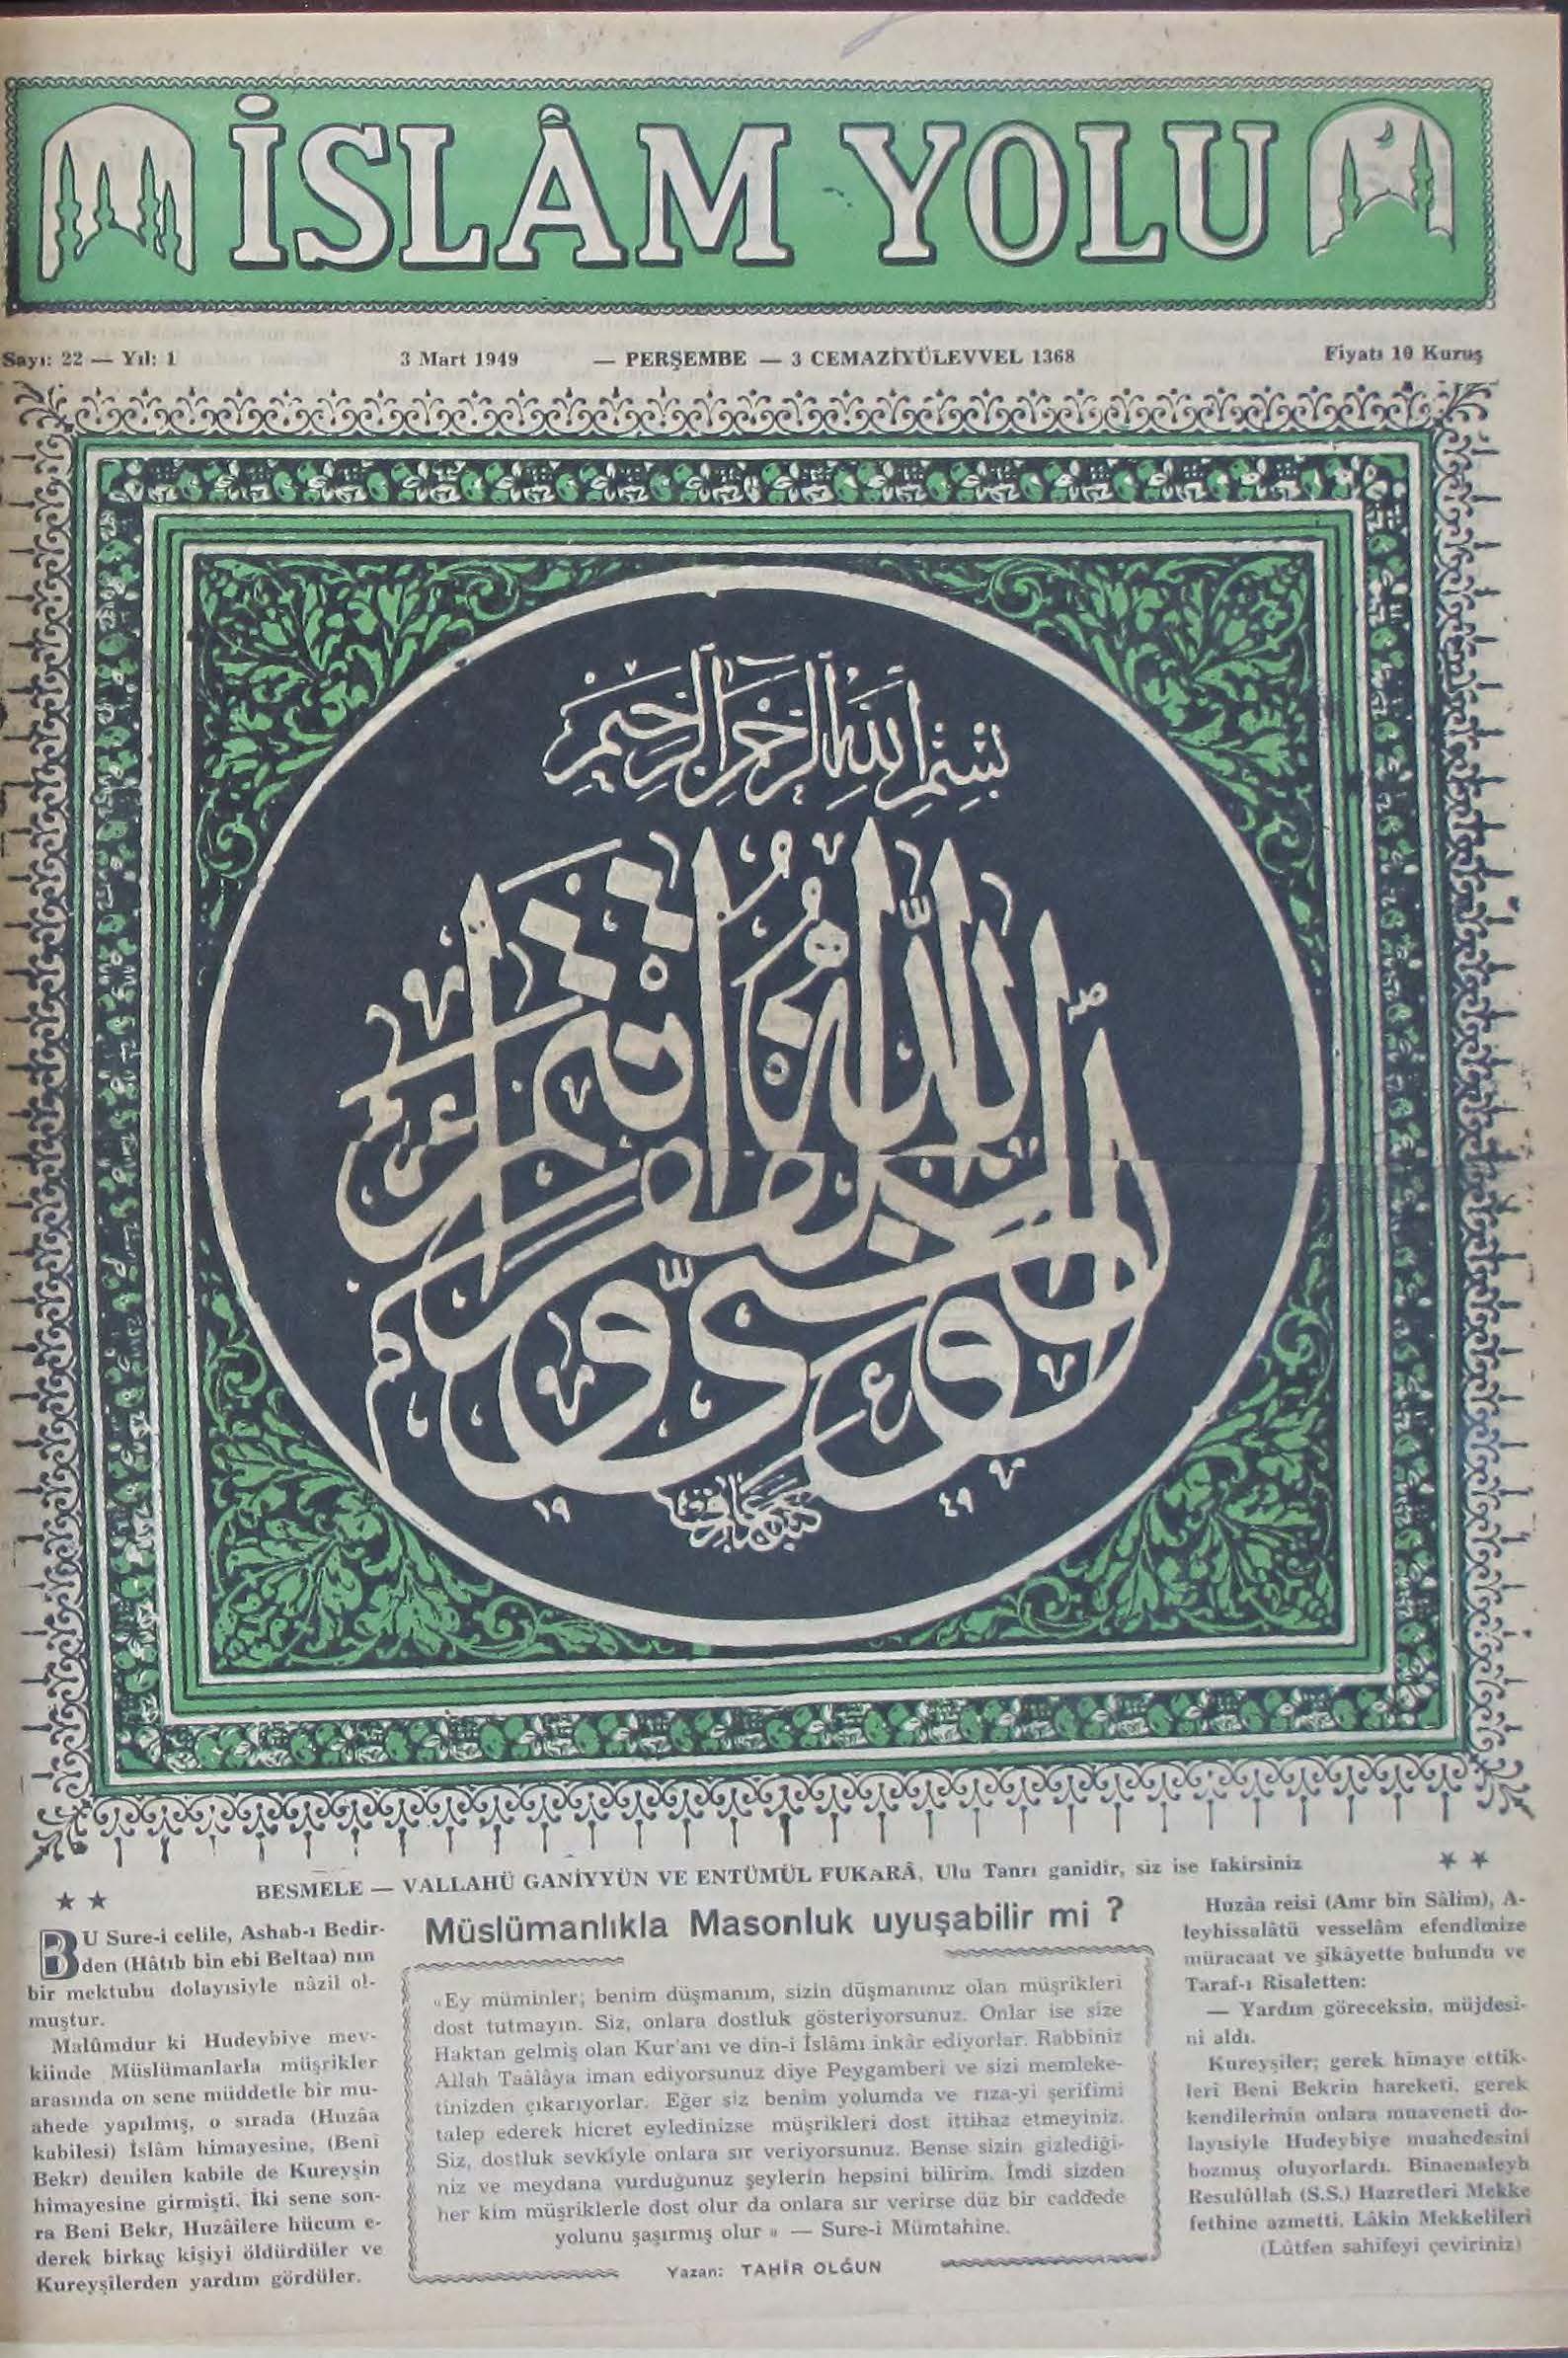 İSLÂM YOLU
Sayı: 22 — Yıl: 1
3 Mart 1949 — PERŞEMBE — 3 CEMAZİYÜLEVVEL 1368
Fiyatı 10 Kuruş
بسم الله الرحمن الرحيم
١٩
٤٩
BESMELE — VALLAHÜ GANİYYÜN VE ENTÜMÜL FUKARÂ, Ulu Tanrı ganidir, siz ise fakirsiniz
Müslümanlıkla Masonluk uyuşabilir mi ?
BU Sure-i celile, Ashab-ı Bedir-
den (Hâtıb bin ebi Beltaa) nın
bir mektubu dolayısiyle nâzil ol-
muştur.
Malûmdur ki Hudeybiye mev-
kiinde Müslümanlarla müşrikler
arasında on sene müddetle bir mu-
ahede yapılmış, o sırada (Huzâa
kabilesi) İslâm himayesine, (Beni
Bekr) denilen kabile de Kureyşin
himayesine girmişti. İki sene son-
ra Beni Bekr, Huzâîlere hücum e-
derek birkaç kişiyi öldürdüler ve
Kureyşîlerden yardım gördüler.
«Ey müminler; benim düşmanım, sizin düşmanınız olan müşrikleri
dost tutmayın. Siz, onlara dostluk gösteriyorsunuz. Onlar ise size
Haktan gelmiş olan Kur'anı ve din-i İslâmı inkâr ediyorlar. Rabbiniz
Allah Taâlâya iman ediyorsunuz diye Peygamberi ve sizi memleke-
tinizden çıkarıyorlar. Eğer siz benim yolumda ve rıza-yi şerifimi
talep ederek hicret eyledinizse müşrikleri dost ittihaz etmeyiniz.
Siz, dostluk sevkiyle onlara sır veriyorsunuz. Bense sizin gizlediği-
niz ve meydana vurduğunuz şeylerin hepsini bilirim. İmdi sizden
her kim müşriklerle dost olur da onlara sır verirse düz bir caddede
yolunu şaşırmış olur » — Sure-i Mümtahine.
Yazan: TAHİR OLĞUN
Huzâa reisi (Amr bin Sâlim), A-
leyhissalâtü vesselâm efendimize
müracaat ve şikâyette bulundu ve
Taraf-ı Risaletten:
— Yardım göreceksin, müjdesi-
ni aldı.
Kureyşiler; gerek himaye ettik-
leri Beni Bekrin hareketi, gerek
kendilerinin onlara muaveneti do-
layısiyle Hudeybiye muahedesini
bozmuş oluyorlardı. Binaenaleyh
Resulûllah (S.S.) Hazretleri Mekke
fethine azmetti. Lâkin Mekkelileri
(Lûtfen sahifeyi çeviriniz)